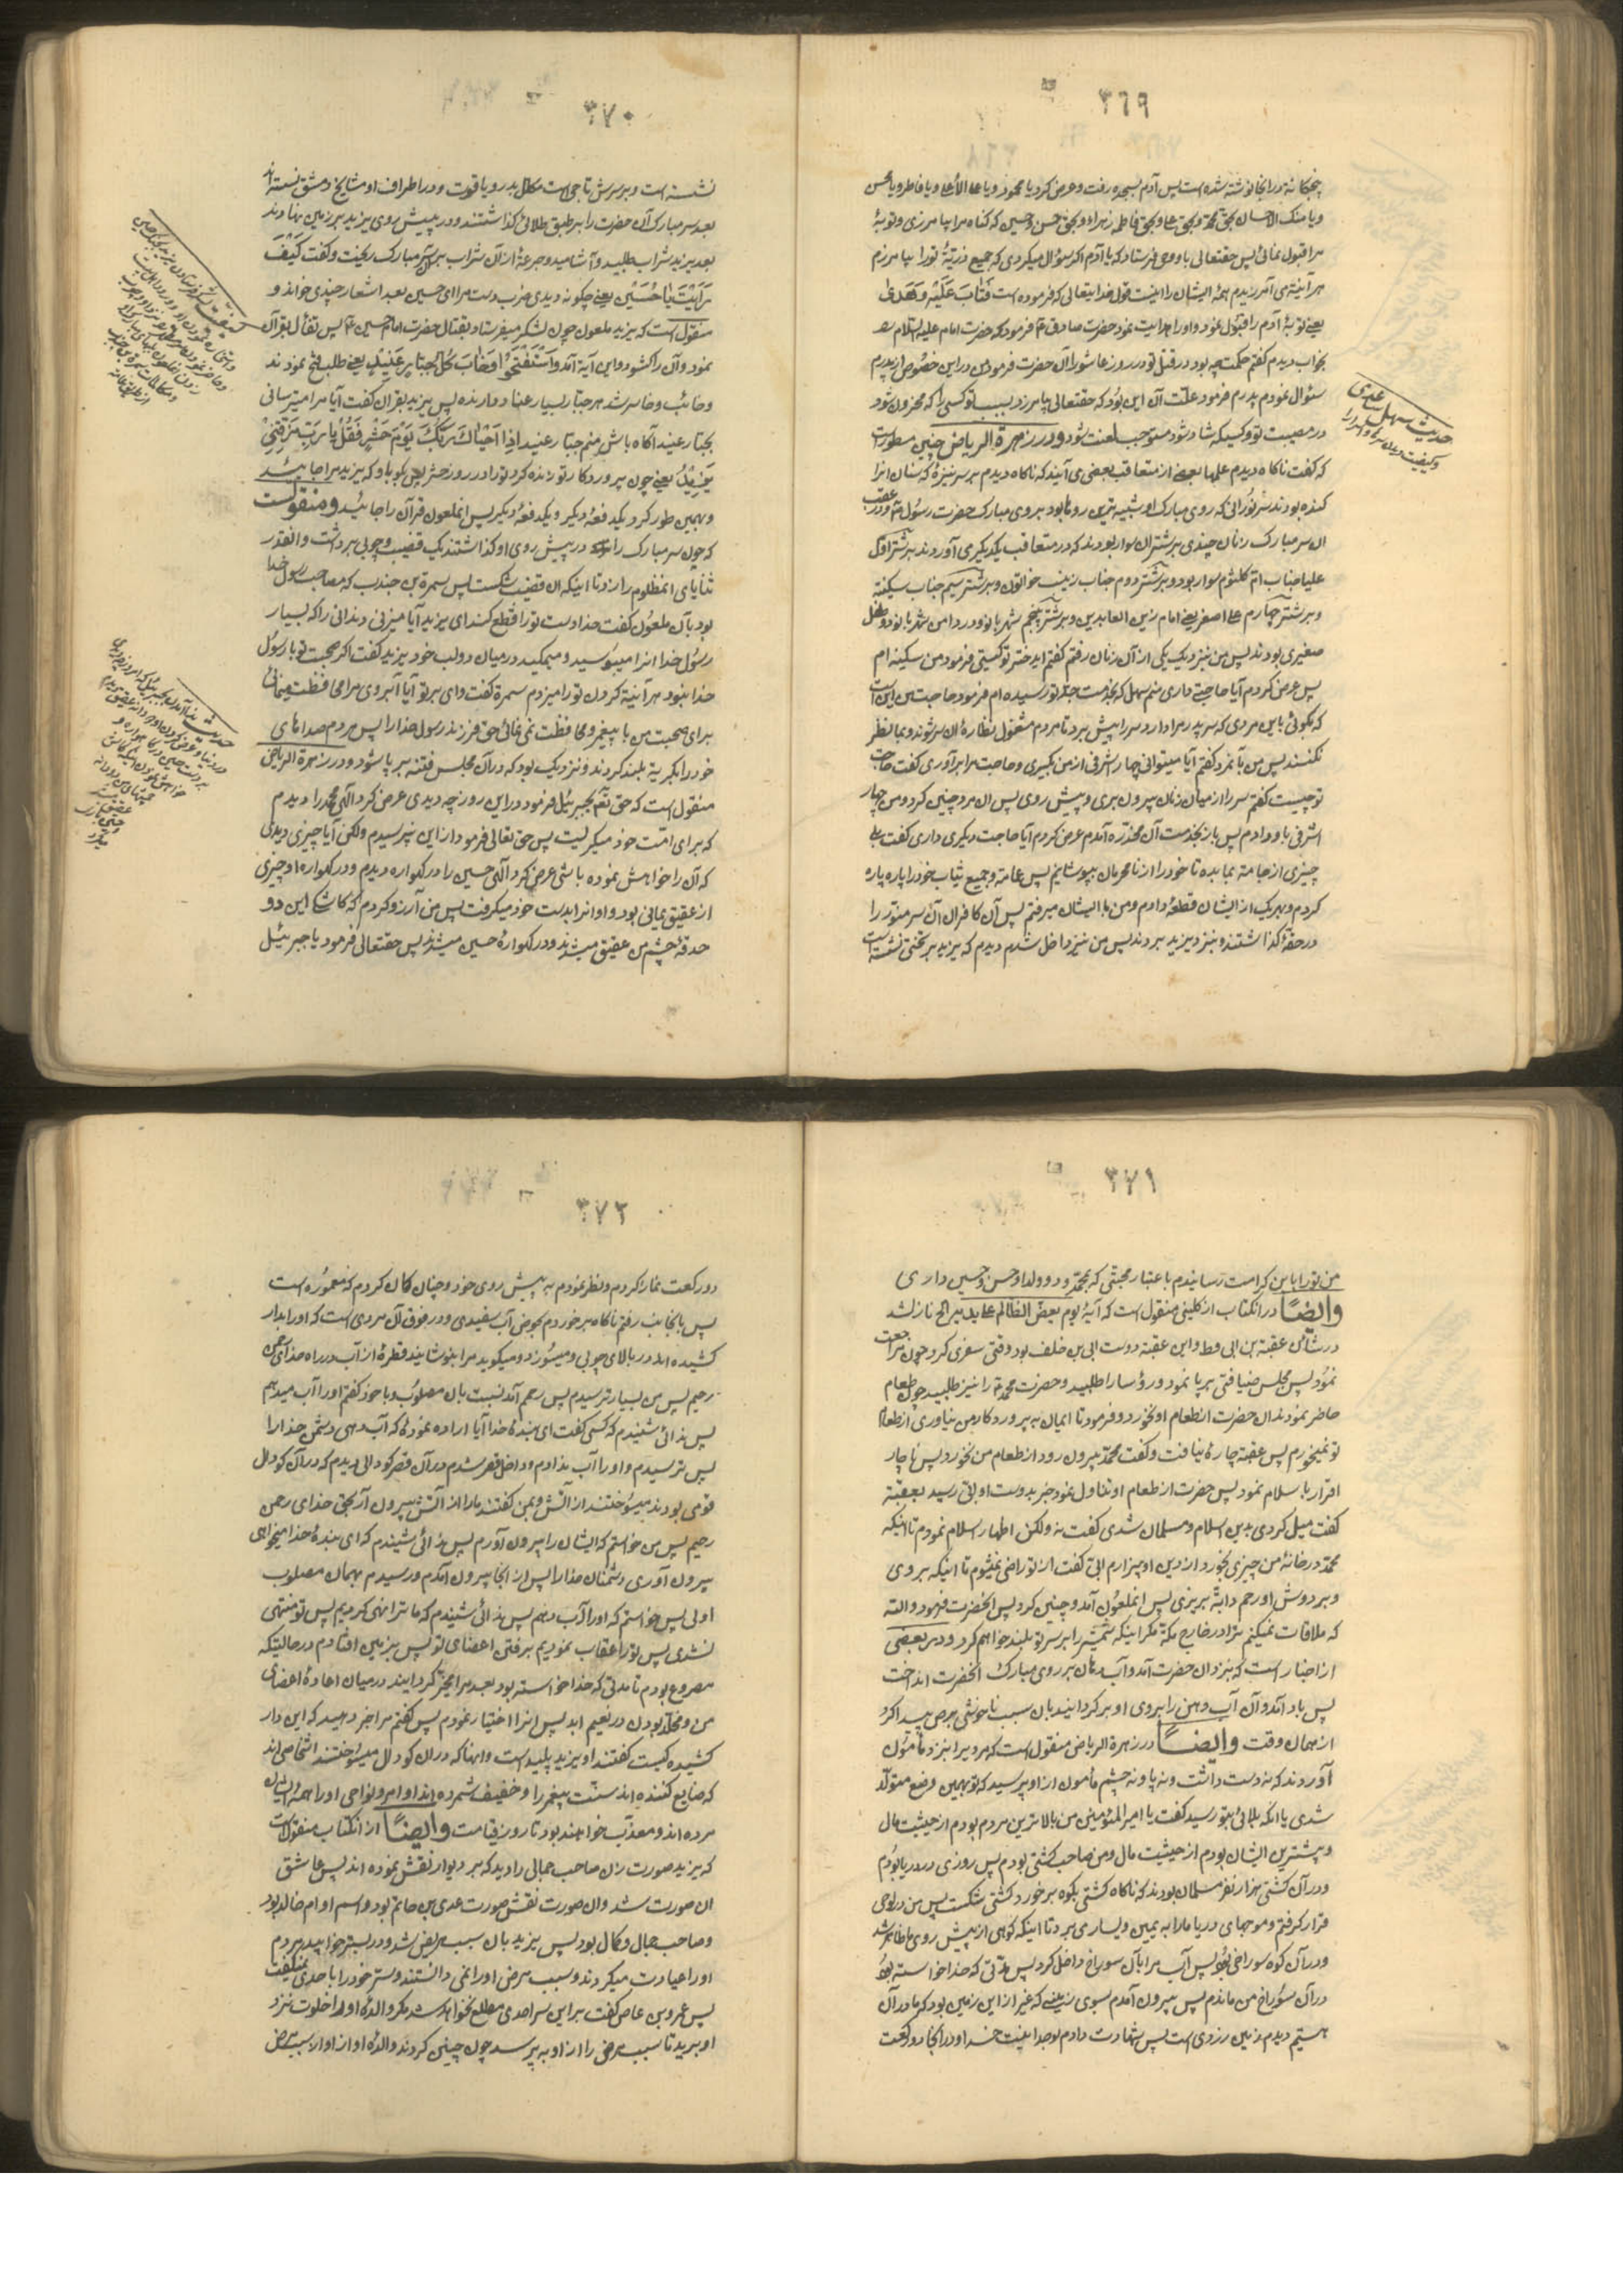 ۳۶۹
پنجگانه در انجا نوشته شده است پس آدم بسجده رفت و عرض کرد یا محمود و یا عالی الأعلی و یا فاطر و یا محسن
و یا منک الاحسان بحق محمد و بحق علی و بحق فاطمه زهراء و بحق حسن و حسین که گناه مرا بیامرزی و توبهٔ
مرا قبول نمائی پس حقتعالی باو وحی فرستاد که یا آدم اکر سؤال میکردی که جمیع ذریّهٔ تو را بیامرزم
هر آینه می آمرزیدم همهٔ ایشان را اینست قول خدایتعالی که فرموده است فَتابَ عَلَیْهِ وَهَدیٰ
یعنی توبهٔ آدم را قبول نمود و او را هدایت نمود حضرت صادق ع فرمود که حضرت امام علیه السّلام
بخواب دیدم کفتم حکمت چه بود در قتل تو در روز عاشورا آن حضرت فرمود من در این خصوص از پدرم
سئوال نمودم پدرم فرمود علّت آن این بُود که حقتعالی بیامرزد بسبب تو کسی را که محزون شود
در مصیبت تو و کسیکه شاد شود مستوجب لعنت شود و در زهرة الریاض چنین مسطور است
که کفت ناکاه دیدم علمها بعضی از متعاقب بعضی می آیند که ناکاه دیدم بر سر نیزهٔ که سنان انرا
کنده بودند سر نورانی که روی مبارک او شبیه ترین روها بود بروی مبارک حضرت رسول ع و در عقب
ان سر مبارک زنان چندی بر شتران سوار بودند که در متعاقب یکدیکر می آوردند بر شتر اوّل
علیا جناب امّ کلثوم سوار بود و بر شتر دوم جناب زینب خواتون و بر شتر سیّم جناب سکینه
و بر شتر چهارم علی اصغر یعنی امام زین العابدین و بر شتر پنجم شهر بانو و در دامن شهر بانو دو طفل
صغیری بودند پس من نزدیک یکی از آن زنان رفتم کفتم ایدختر تو کیستی فرمود من سکینه ام
پس عرض کردم آیا حاجتی داری منم سهل که بخدمت جدّ تو رسیده ام فرمود حاجت من این است
که بکوئی باین مردی که سر پدر مرا دارد سر را پیش برد تا مردم مشغول نظارهٔ ان سر شوند و بما نظر
نکنند پس من بآنمرد کفتم آیا میتوانی چهار اشرفی از من بکیری و حاجت مرا برآوری کفت حاجت
تو چیست کفتم سر را از میان زنان بیرون بری و پیش روی پس ان مرد چنین کرد و من چهار
اشرفی باو دادم پس باز بخدمت آن مخدّره آمدم عرض کردم آیا حاجت دیکری داری کفت بلی
چیزی از جامه بما بده تا خود را از نامحرمان بپوشانیم پس عمامه و جمیع ثیاب خود را پاره پاره
کردم و بهر یک از ایشان قطعهٔ دادم و من با ایشان میرفتم پس آن کافران آن سر منوّر را
در حقّه کذاشتند و بنزد یزید بردند پس من نیز داخل شدم دیدم که یزید بر تختی نشسته است
حدیث سهل ساعدی
۳۷۰
نشسته است و بر سرش تاجی است مکلّل بدر و یاقوت و در اطراف او مشایخ دمشق نشسته اند
بعد سر مبارک آن حضرت را بر طبق طلائی کذاشتند و در پیش روی یزید بر زمین نهادند
بعد یزید شراب طلبید و آشامید و جرعهٔ از آن شراب بر آن سر مبارک ریخت و کفت کَیْفَ
رَاَیْتَ یا حُسَیْن یعنی چکونه دیدی ضرب دست مرا ای حسین بعد اشعار چندی خواند و
منقول است که یزید ملعون چون لشکر میفرستاد بقتال حضرت امام حسین ع پس تفأل بقرآن
نمود و آن را کشود و این آیه آمد وَاسْتَفْتَحُوا وَخابَ کُلُّ جَبّارٍ عَنیدٍ یعنی طلب فتح نمودند
و خائب و خاسر شد هر جبّار بسیار عناد دارنده پس یزید بقران کفت آیا مرا میترسانی
بجبّار عنید آکاه باش منم جبّار عنید اِذا اَحْیاكَ رَبُّكَ یَوْمَ حَشْرٍ فَقُلْ یا رَبِّ مَزَّقَنی
یَزیدُ یعنی چون پروردکار تو زنده کرد تو را در روز حشر پس بکو باو که یزید مرا جائید
و بهمین طور کرد یکدفعهٔ دیکر و یکدفعهٔ دیکر پس انملعون قرآن را جائید و منقولست
که چون سر مبارک را در پیش روی او کذاشتند یک قضیب و چوبی برداشت و انقدر
ثنایای انمظلوم را زد تا اینکه ان قضیب شکست پس سمرة بن جندب که مصاحب رسول خدا
بود بآن ملعون کفت خدا دست تو را قطع کند ای یزید آیا میزنی دندانی را که بسیار
رسول خدا انرا میبوسید و میمکید در میان دو لب خود یزید کفت اکر صحبت تو با رسول
خدا نبود هر آینه کردن تو را میزدم سمرة کفت وای بر تو آیا آبروی مرا محافظت مینمائی
برای صحبت من با پیغمبر و محافظت نمی نمائی حق فرزند رسول خدا را پس مردم صداهای
خود را بکریه بلند کردند و نزدیک بود که در آن مجلس فتنه بر پا شود و در زهرة الریاض
منقول است که حق تعم بجبرئیل فرمود در این روز چه دیدی عرض کرد الٰهی محمّد را دیدم
که برای امّت خود میکریست پس حق تعالی فرمود از این نپرسیدم ولکن آیا چیزی دیدی
که آن را خواهش نموده باشی عرض کرد الٰهی حسین را در کهواره دیدم و در کهواره او چیزی
از عقیق یمانی بود و او انرا بدست خود میکرفت پس من آرزو کردم که کاشکی این دو
حدقهٔ چشم من عقیق میشدند و در کهوارهٔ حسین میشدند پس حقتعالی فرمود یا جبرئیل
۳۷۱
من تو را باین کرامت رسانیدم باعتبار محبّتی که بمحمّد و دو ولد او حسن و حسین داری
وایضاً در انکتاب از کلینی منقول است که آیهٔ یوم یعضّ الظالم علی یدیه الخ نازل شد
در شأن عقبة بن ابی و این عقبه دوست ابی بن خلف بود وقتی سفری کرد چون مراجعت
نمود پس مجلس ضیافتی بر پا نمود و رؤسا را طلبید و حضرت محمّد ص را نیز طلبید چون طعام
حاضر نمودند ان حضرت از طعام او نخورد و فرمود تا ایمان به پروردکار من نیاوری از طعام
تو نمیخورم پس عقبه چارهٔ نیافت و کفت محمّد بیرون رود از طعام من نخورد پس ناچار
اقرار باسلام نمود پس حضرت از طعام او تناول نمود خبر بدوست او ابّی رسید بعقبه
کفت میل کردی بدین اسلام و مسلمان شدی کفت نه ولکن اظهار اسلام نمودم تا اینکه
محمّد در خانهٔ من چیزی بخورد و از دین او بیزارم ابّی کفت از تو راضی نمیشوم تا اینکه بروی
و بر دوش او رحم دابّه بریزی پس انملعون آمد و چنین کرد پس انحضرت فرمود والله
که ملاقات نمیکنم ترا در خارج مکّه مکر اینکه شمشیر را بر سر تو بلند خواهم کرد و در بعضی
از اخبار است که بنزد ان حضرت آمد و آب دهان بر روی مبارک انحضرت انداخت
پس باد آمد و آن آب دهن را بروی او بر کردانید بان سبب ناخوشی برص پیدا کرد
از همان وقت وایضاً در زهرة الریاض منقول است که مردیرا بنزد مأمون
آوردند که نه دست داشت و نه پا و نه چشم مأمون از او پرسید که تو بهمین وضع متولّد
شدی یا انکه بلائی بتو رسید کفت یا امیر المؤمنین من بالاترین مردم بودم از حیثیت مال
و بیشترین ایشان بودم از حیثیت مال و من صاحب کشتی بودم پس روزی در دریا بودم
و در آن کشتی هزار نفر مسلمان بودند که ناکاه کشتی بکوه بر خورد کشتی شکست پس من در لوحی
قرار کرفتم و موجهای دریا مارا به یمین و یسار می برد تا اینکه کوهی از پیش روی ما ظاهر شد
و در آن کوه سوراخی بود پس آب مرا بآن سوراخ داخل کرد پس مدّتی که خدا خواسته بود
در آن سوراخ من ماندم پس بیرون آمدم بسوی زمینی که غیر از این زمین بود که ما در آن
هستیم دیدم زمین زردی است پس شهادت دادم بوحدانیّت خدا و در انجا دو رکعت
۳۷۲
دو رکعت نماز کردم و نظر نمودم به پیش روی خود و چنان کمان کردم که معموره است
پس بانجانب رفتم ناکاه بر خوردم بحوض آب سفیدی و در فوق آن مردی است که او را بدار
کشیده اند در بالای چوبی و میسوزد و میکوید مرا بنوشانید قطرهٔ از آب در راه خدای رحمن
رحیم پس من بسیار ترسیدم پس رحمم آمد نسبت بان مصلوب و با خود کفتم او را آب میدهم
پس ندائی شنیدم که کسی کفت ای بندهٔ خدا آیا اراده نمودهٔ که آب دهی دشمن خدا را
پس ترسیدم و او را آب ندادم و داخل قصر شدم در آن قصر کودالی دیدم که در آن کودال
قومی بودند میسوختند از آتش و بمن کفتند ما را از آتش بیرون آر بحق خدای رحمن
رحیم پس من خواستم که ایشان را بیرون آورم پس ندائی شنیدم که ای بندهٔ خدا میخواهی
بیرون آوری دشمنان خدا را پس از انجا بیرون آمدم و رسیدم بهمان مصلوب
اولی پس خواستم که او را آب دهم پس ندائی شنیدم که ما ترا نهی کردیم پس تو منتهی
نشدی پس تو را عقاب نمودیم برفتن اعضای تو پس بزمین افتادم در حالتیکه
مصروع بودم تا مدتی که خدا خواسته بود بعد مرا مخیّر کردانیدند در میان اعادهٔ اعضای
من و مخلّد بودن در نعیم ابد پس انرا اختیار نمودم پس کفتم مرا خبر دهید که این دار
کشیده کیست کفتند او یزید پلید است و انهائیکه در ان کودال میسوختند اشخاصی اند
که ضایع کننده اند سنّت پیغمبر را و خفیف شمرده اند اوامر و نواهی او را همهٔ ایشان
مرده اند و معذّب خواهند بود تا روز قیامت وایضاً از انکتاب منقول است
که یزید صورت زن صاحب جمالی را دید که بر دیوار نقش نموده اند پس عاشق
ان صورت شد و ان صورت نقش صورت عدی بن حاتم بود و اسم او ام خالد بود
و صاحب جمال و کمال بود پس یزید بان سبب مریض شد و در بستر خوابید مردم
او را عیادت میکردند و سبب مرض او را نمی دانستند و سرّ خود را باحدی نمیکفت
پس عمرو بن عاص کفت بر این سر احدی مطلع نخواهد شد مکر والدهٔ او او را خلوت نزد
او برید تا سبب مرض را از او بپرسد چون چنین کردند والدهٔ او از او از سبب مرض